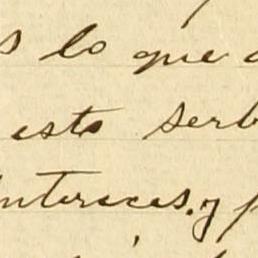 s lo que
esto serb
intereces. y p